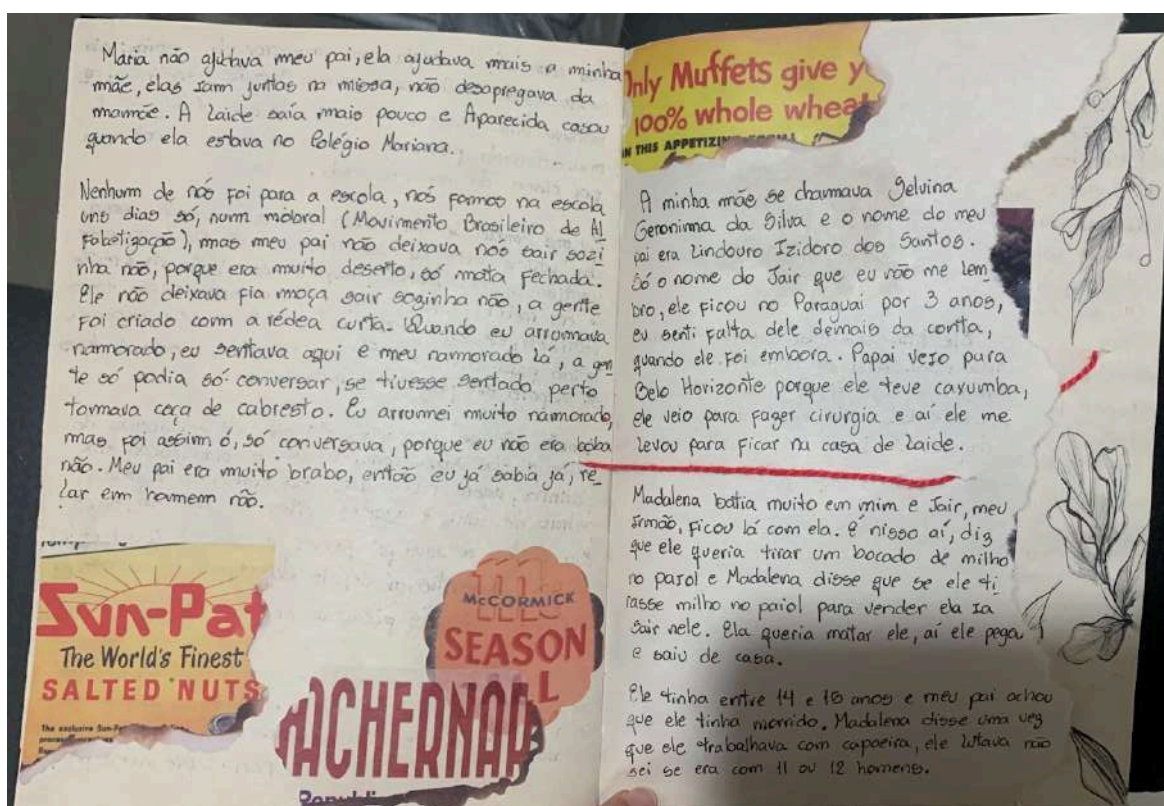 Maria não ajudava meu pai, ela ajudava mais a minha
mãe, elas iam juntas na missa, não desapregava da
mamãe. A Laide saía mais pouco e Aparecida casou
quando ela estava no Colégio Mariana.
Nenhum de nós foi para a escola, nós fomos na escola
uns dias só, num mobral (Movimento Brasileiro de Al
fabetização), mas meu pai não deixava nós sair sozi
nha não, porque era muito deserto, só mata fechada.
Ele não deixava fia moça sair soginha não, a gente
foi criado com a rédea curta. Quando eu arrumava
namorado, eu sentava aqui e meu namorado lá, a gen
te só podia só conversar, se tivesse sentado perto
tomava coça de cabresto. Eu arrumei muito namorado,
mas foi assim ó, só conversava, porque eu não era boba
não. Meu pai era muito brabo, então eu já sabia já, re
lar em homem não.
Sun-Pat
The World's Finest
SALTED NUTS
The exclusive Sun-Pa
McCORMICK
SEASON
ALL
ACHERNAR
Only Muffets give y
100% whole wheat
IN THIS APPETIZING
A minha mãe se chamava Gelvina
Geronima da Silva e o nome do meu
pai era Lindouro Izidoro dos Santos.
Só o nome do Jair que eu não me lem
bro, ele ficou no Paraguai por 3 anos,
eu senti falta dele demais da conta,
quando ele foi embora. Papai veio para
Belo Horizonte porque ele teve caxumba,
ele veio para fazer cirurgia e aí ele me
levou para ficar na casa de Laide.
Madalena batia muito em mim e Jair, meu
irmão, ficou lá com ela. E nisso aí, diz
que ele queria tirar um bocado de milho
no paiol e Madalena disse que se ele ti
rasse milho no paiol para vender ela ia
sair nele. Ela queria matar ele, aí ele pega
e saiu de casa.
Ele tinha entre 14 e 15 anos e meu pai achou
que ele tinha morrido. Madalena disse uma vez
que ele trabalhava com capoeira, ele lutava não
sei se era com 11 ou 12 homens.